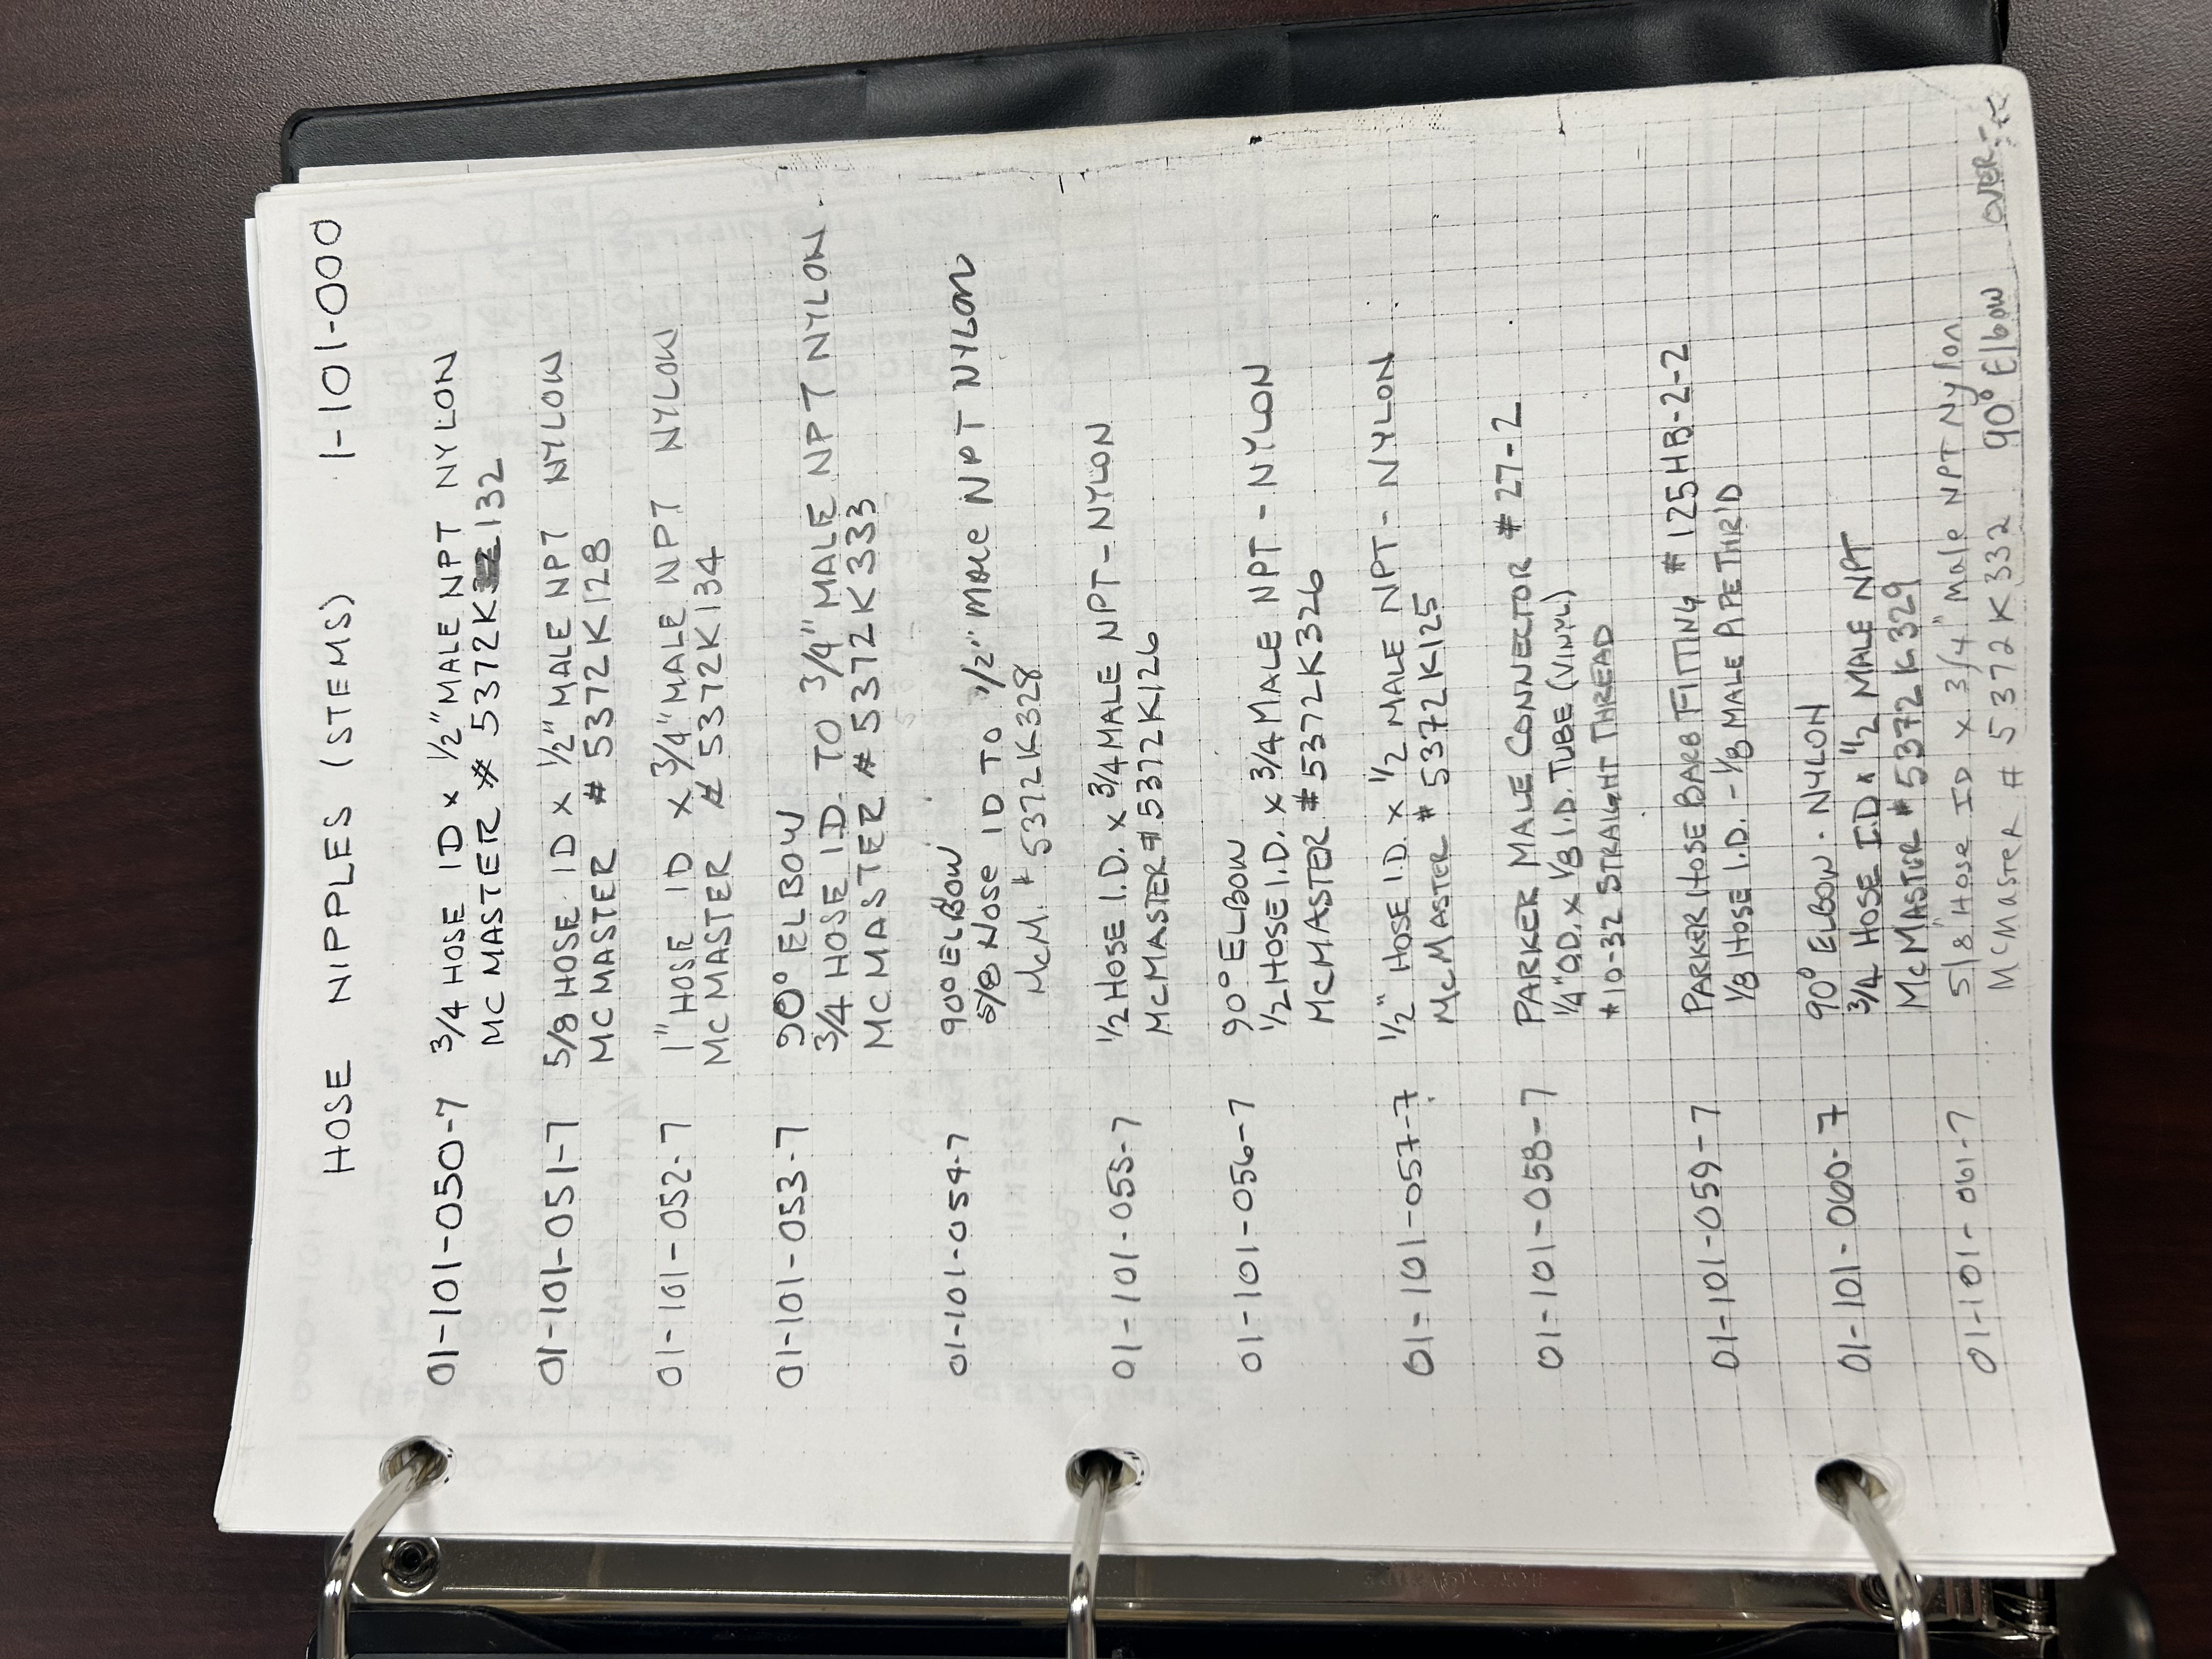 HOSE NIPPLES (STEMS) 1-101-000
01-101-050-7 3/4 HOSE ID x 1/2" MALE NPT NYLON
MCMASTER # 5372K 132
01-101-051-7 5/8 HOSE ID x 1/2" MALE NPT NYLON
MCMASTER # 5372K128
01-101-052-7 1" HOSE ID x 3/4" MALE NPT NYLON
MCMASTER # 5372K134
01-101-053-7 90° ELBOW
3/4 HOSE I.D. TO 3/4" MALE NPT NYLON
MCMASTER # 5372K333
01-101-054-7 90° ELBOW
5/8 Hose ID TO 1/2" Male NPT NYLON
McM. # 5372K328
01-101-055-7 1/2 HOSE I.D. x 3/4 MALE NPT - NYLON
MCMASTER # 5372K126
01-101-056-7 90° ELBOW
1/2 HOSE I.D. x 3/4 MALE NPT - NYLON
MCMASTER # 5372K326
01-101-057-7 1/2" HOSE I.D. x 1/2 MALE NPT - NYLON
McMASTER # 5372K125
01-101-058-7 PARKER MALE CONNECTOR # 27-2
1/4" O.D. x 1/8 I.D. TUBE (VINYL)
#10-32 STRAIGHT THREAD
01-101-059-7 PARKER HOSE BARB FITTING # 125HB-2-2
1/8 HOSE I.D. - 1/8 MALE PIPE THR'D
01-101-060-7 90° ELBOW - NYLON
3/4 HOSE I.D x 1/2 MALE NPT
McMASTER # 5372K329
01-101-061-7 5/8" Hose ID x 3/4" Male NPT Nylon
McMaster # 5372K332 90° Elbow OVER -